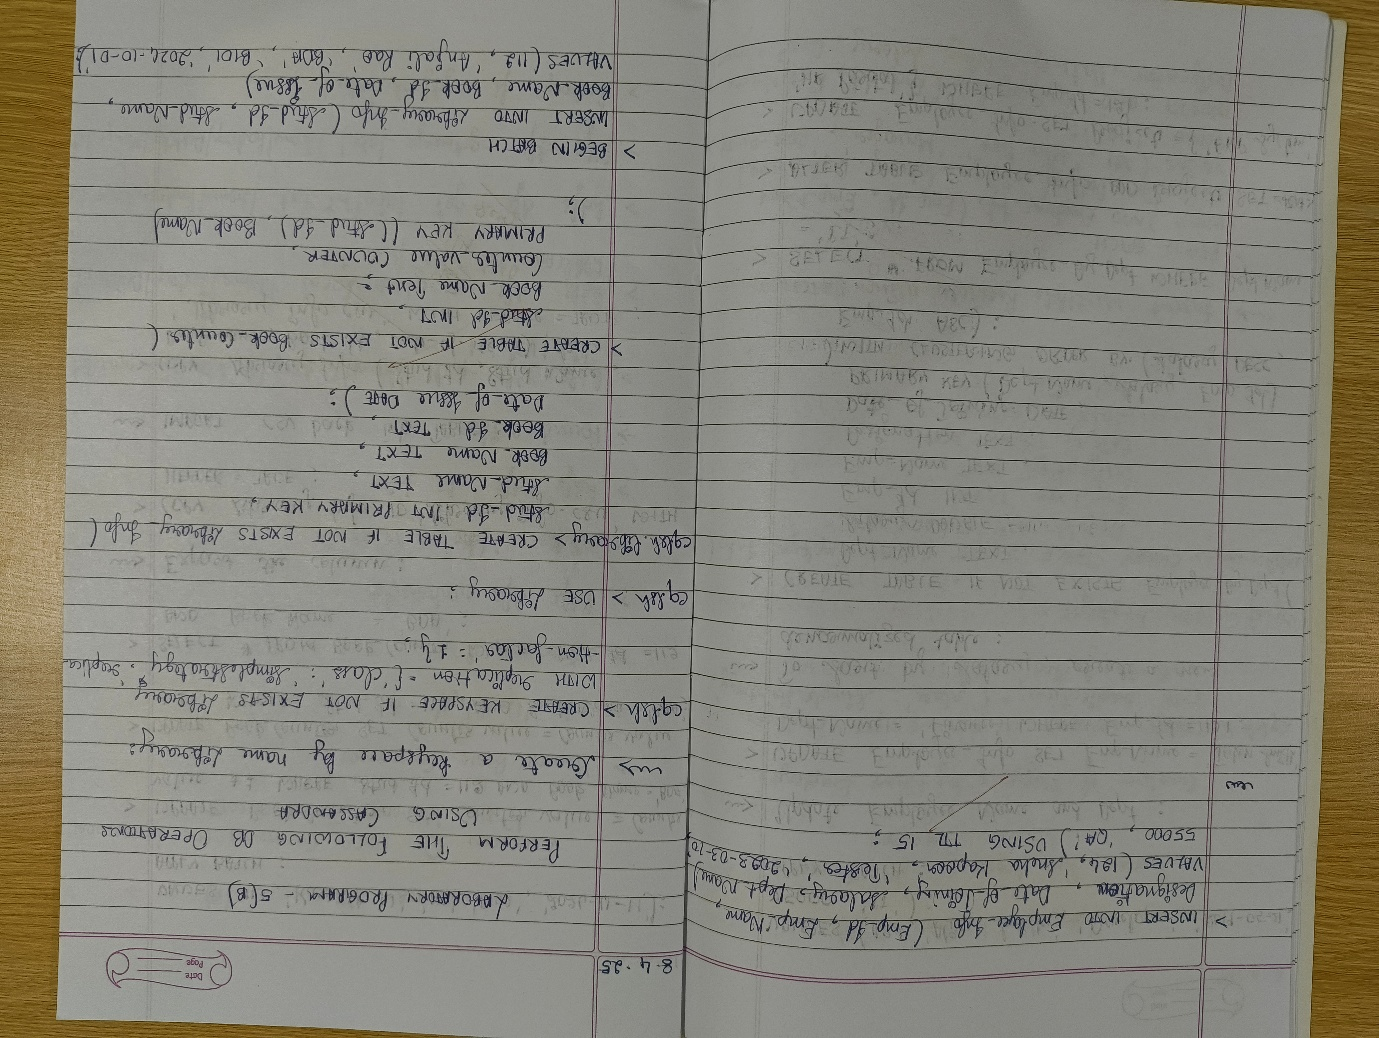 > INSERT INTO Employee-Info (Emp-Id, Emp-Name,
Designation, Date-of-Joining, Salary, Dept-Name)
VALUES (124, 'Sneha Kapoor', 'Tester', '2023-03-10',
55000, 'QA') USING TTL 15;
Date
Page
8.4.25
LABORATORY PROGRAM - 5(B)
PERFORM THE FOLLOWING DB OPERATIONS
USING CASSANDRA
Create a keyspace by name Library:
cqlsh > CREATE KEYSPACE IF NOT EXISTS Library
WITH replication = {'class': 'SimpleStrategy', 'replica-
-tion-factor': 1};
cqlsh > USE Library;
cqlsh:library> CREATE TABLE IF NOT EXISTS Library-Info (
Stud-Id INT PRIMARY KEY,
Stud-Name TEXT,
Book-Name TEXT,
Book-Id TEXT,
Date-of-Issue DATE);
> CREATE TABLE IF NOT EXISTS Book-Counter (
Stud-Id INT,
Book-Name Text,
Counter-value COUNTER,
PRIMARY KEY ((Stud-Id), Book-Name)
);
> BEGIN BATCH
INSERT INTO Library-Info (Stud-Id, Stud-Name,
Book-Name, Book-Id, Date-of-Issue)
VALUES (112, 'Anjali Rao', 'BDA', 'B101', '2024-10-01');